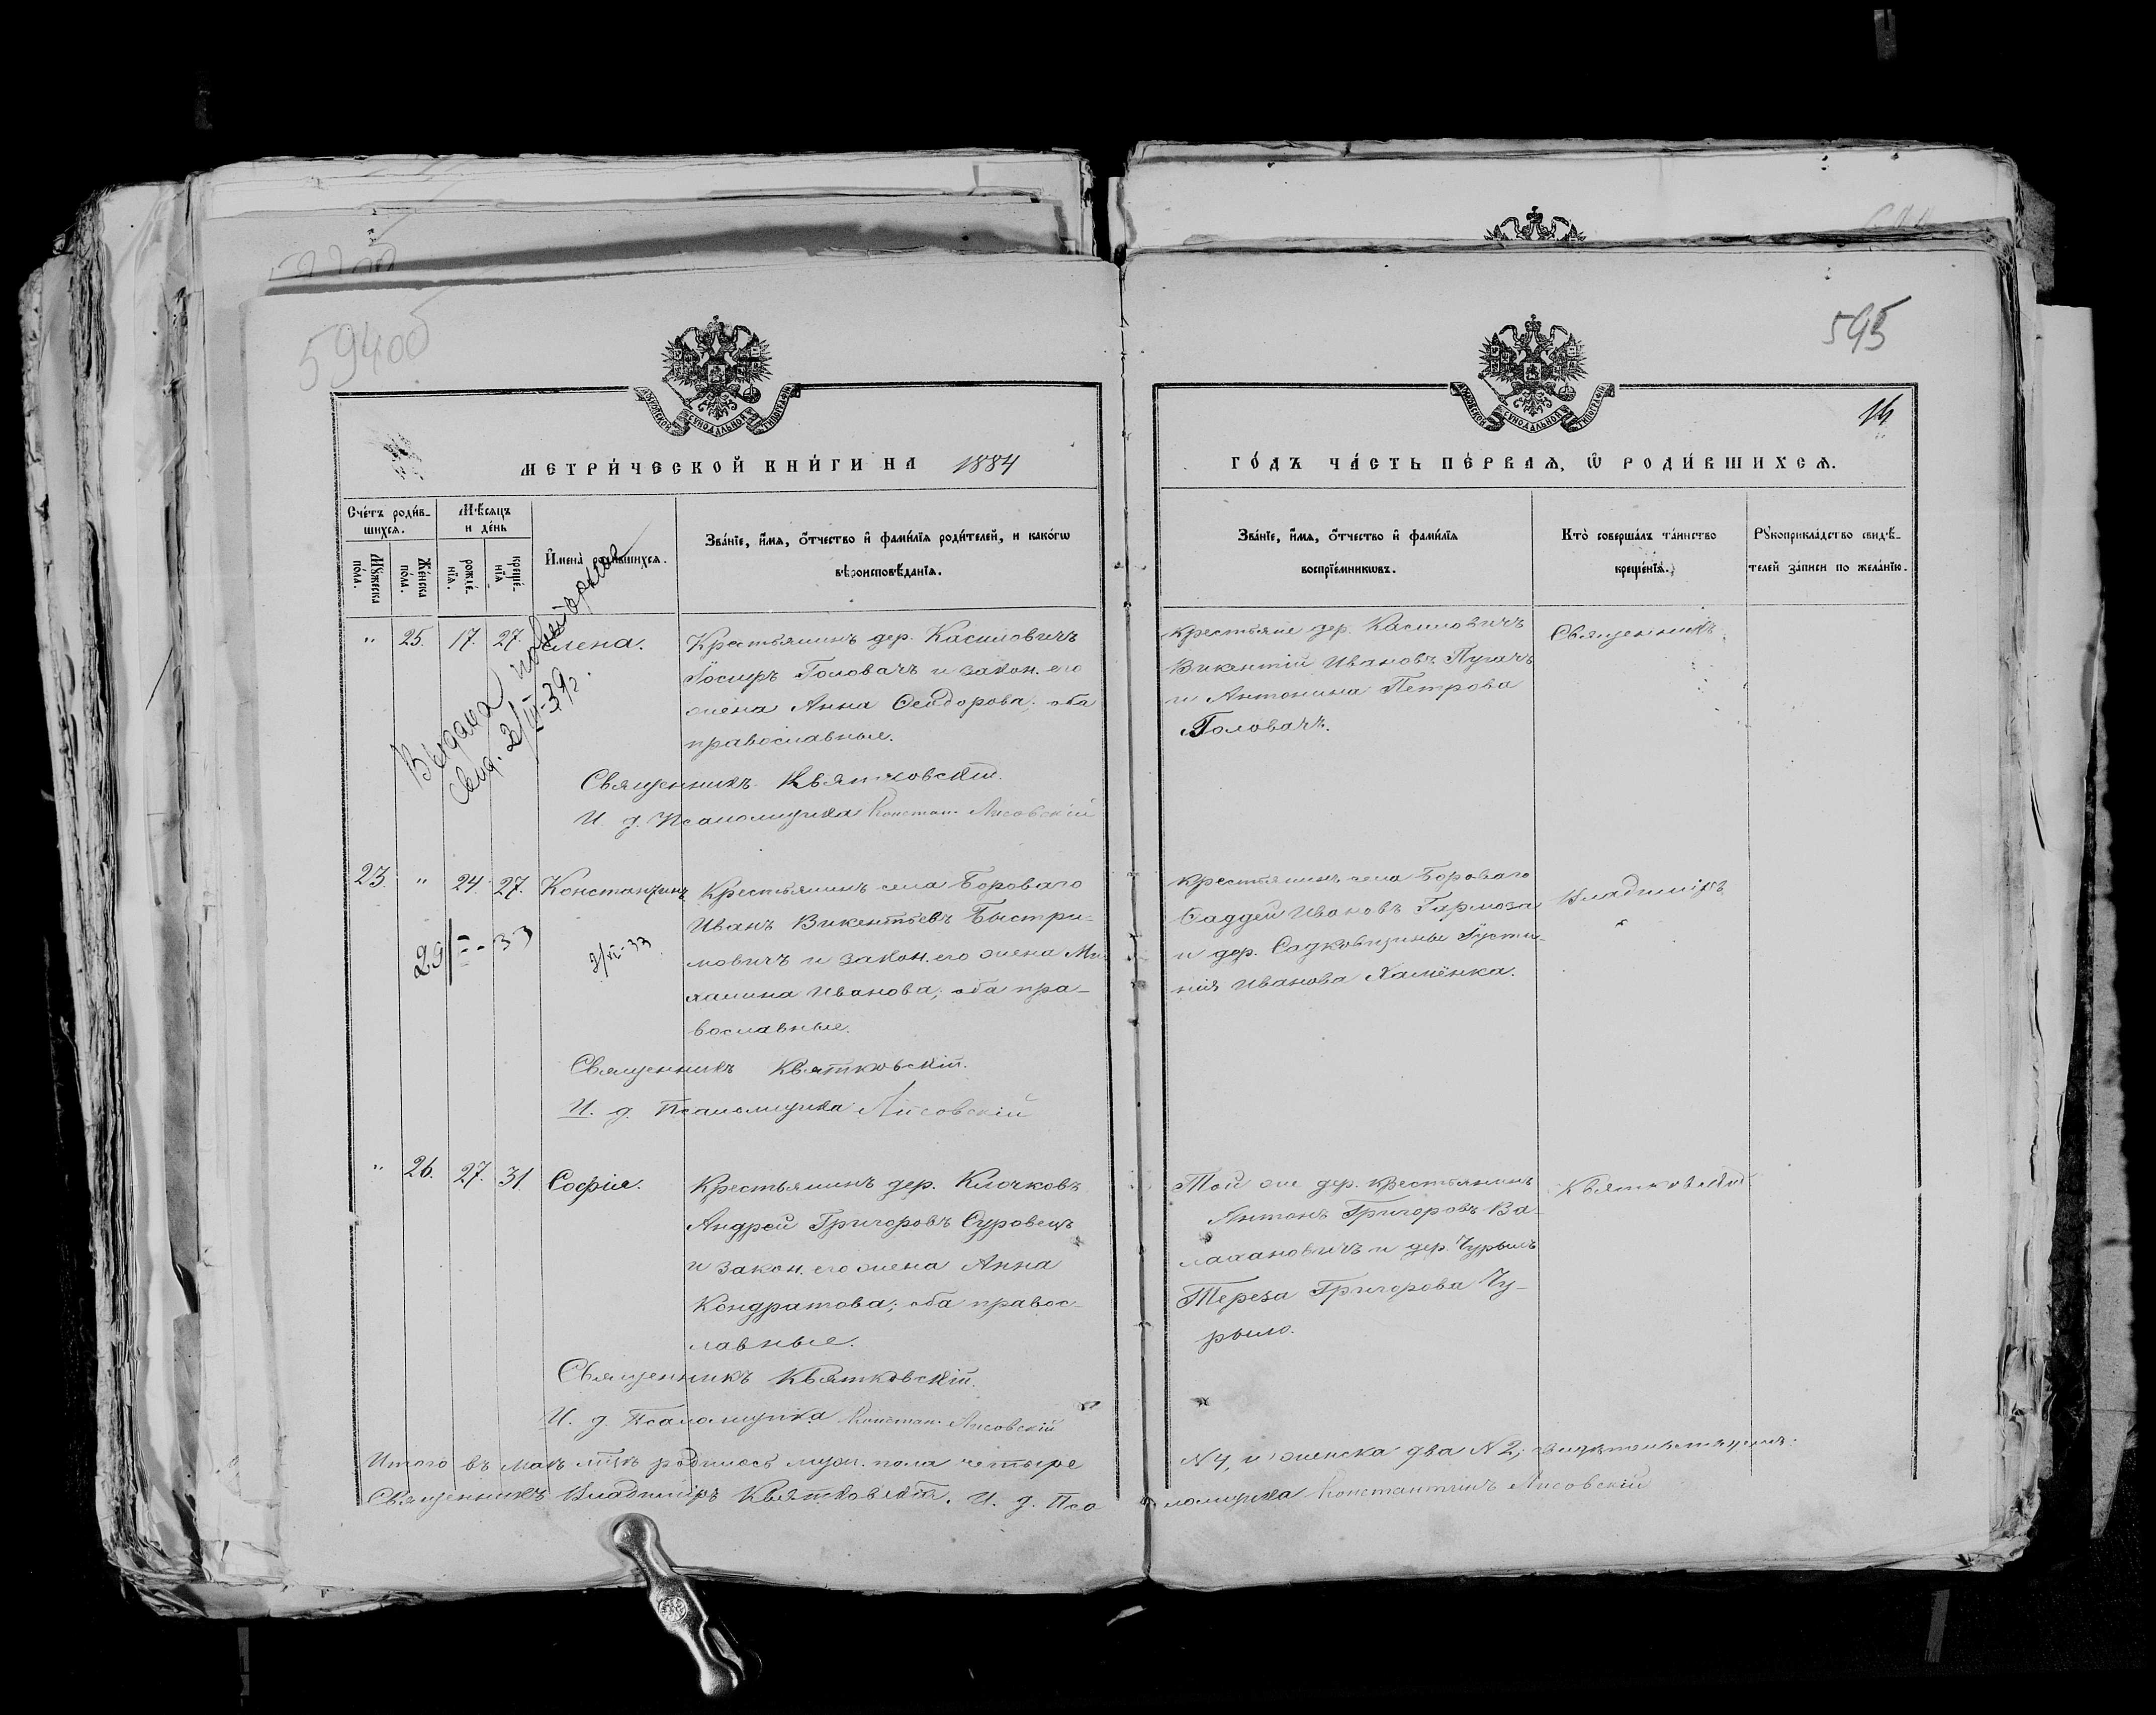 594об
595
14
МЕТРИ́ЧЕСКОЙ КНИ́ГИ НА 1884
ГО́ДЪ ЧА́СТЬ ПЕ́РВАѦ, Ѡ҆ РОДИ́ВШИХСѦ.
Сче́тъ роди́в-
шихсѧ.
Мꙋ́жеска
по́ла.
Же́нска
по́ла.
Мѣ́сяцъ
и де́нь
рожде́-
нїѧ.
креще́-
нїѧ.
И҆мена̀ роди́вшихсѧ.
Зва́нїе, и҆́мѧ, ѻ҆́тчество и҆ фами́лїѧ роди́телей, и како́гѡ
вѣроисповѣ́данїѧ.
Зва́нїе, и҆́мѧ, ѻ҆́тчество и҆ фами́лїѧ
воспрїе́мникѡвъ.
Кто̀ соверша́лъ та́инство
креще́нїѧ.
Рꙋкоприкла́дство свидѣ́-
телей за́писи по жела́нїю.
" 25. 17. 27. Елена.
Крестьянинъ дер. Касиловичъ
Іосифъ Головачъ и закон. его
жена Анна Сейдорова; оба
православные.
Священникъ Квятковскій.
И. д. Псаломщика Констан. Лисовскій
Выдана повторная
свид. 2/IV-39г.
Крестьяне дер. Касиловичъ
Викентій Ивановъ Пугачъ
и Антонина Петрова
Головачъ.
Священникъ
23. " 24. 27. Константинъ
Крестьянинъ села Бороваго
Иванъ Викентьевъ Быстри-
мовичъ и закон. его жена Ми-
халина Иванова; оба пра-
вославные.
Священникъ Квятковскій.
И. д. Псаломщика Лисовскій
Крестьянинъ села Бороваго
Фаддей Ивановъ Гармоза
и дер. Садковщины Іусти-
нія Иванова Хамёнка.
Владиміръ
" 26. 27. 31. Софія.
Крестьянинъ дер. Клочковъ
Андрей Григоровъ Суровецъ
и закон. его жена Анна
Кондратова; оба правос-
лавные.
Священникъ Квятковскій.
И. д. Псаломщика Констан. Лисовскій
Той же дер. крестьянинъ
Антонъ Григоровъ Ва-
лахановичъ и дер. Чурылъ
Тереза Григорова Чу-
рыло.
Квятковскій.
Итого въ маѣ м-цѣ родилось муж. пола четыре
N 4, и женска два N 2;
Священникъ Владиміръ Квятковскій. И. д. Пса
ломщика Константинъ Лисовскій